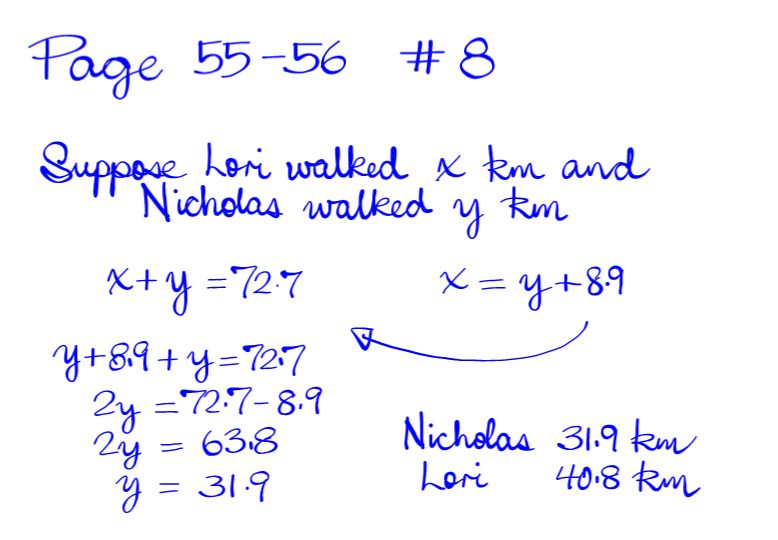 Page 55-56 #8
Suppose Lori walked x km and
Nicholas walked y km
x+y=72.7 x=y+8.9
y+8.9+y=72.7
2y=72.7-8.9
2y=63.8
y=31.9
Nicholas 31.9 km
Lori 40.8 km